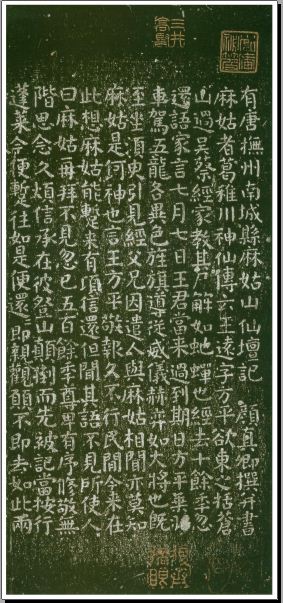 有唐撫州南城縣麻姑山仙壇記 顏真卿撰并書
麻姑者葛稚川神仙傳云王遠字方平欲東之括蒼
山過吳蔡經家教其尸解如虵蟬也經去十餘秊忽
還語家言七月七日王君當来過到期日方平乘
車駕五龍各異色旌旗導從威儀赫弈如大將也既
至坐須臾引見經父兄因遣人與麻姑相聞亦莫知
麻姑是何神也言王方平敬報久不行民間今来在
此想麻姑能蹔来有頃信還但聞其語不見所使人
曰麻姑再拜不見忽已五百餘秊尊卑有序修敬無
階思念久煩信承在彼登山顛倒而先被記當按行
蓬萊今便蹔往如是便還即親觀願不即去如此兩
三井高堅